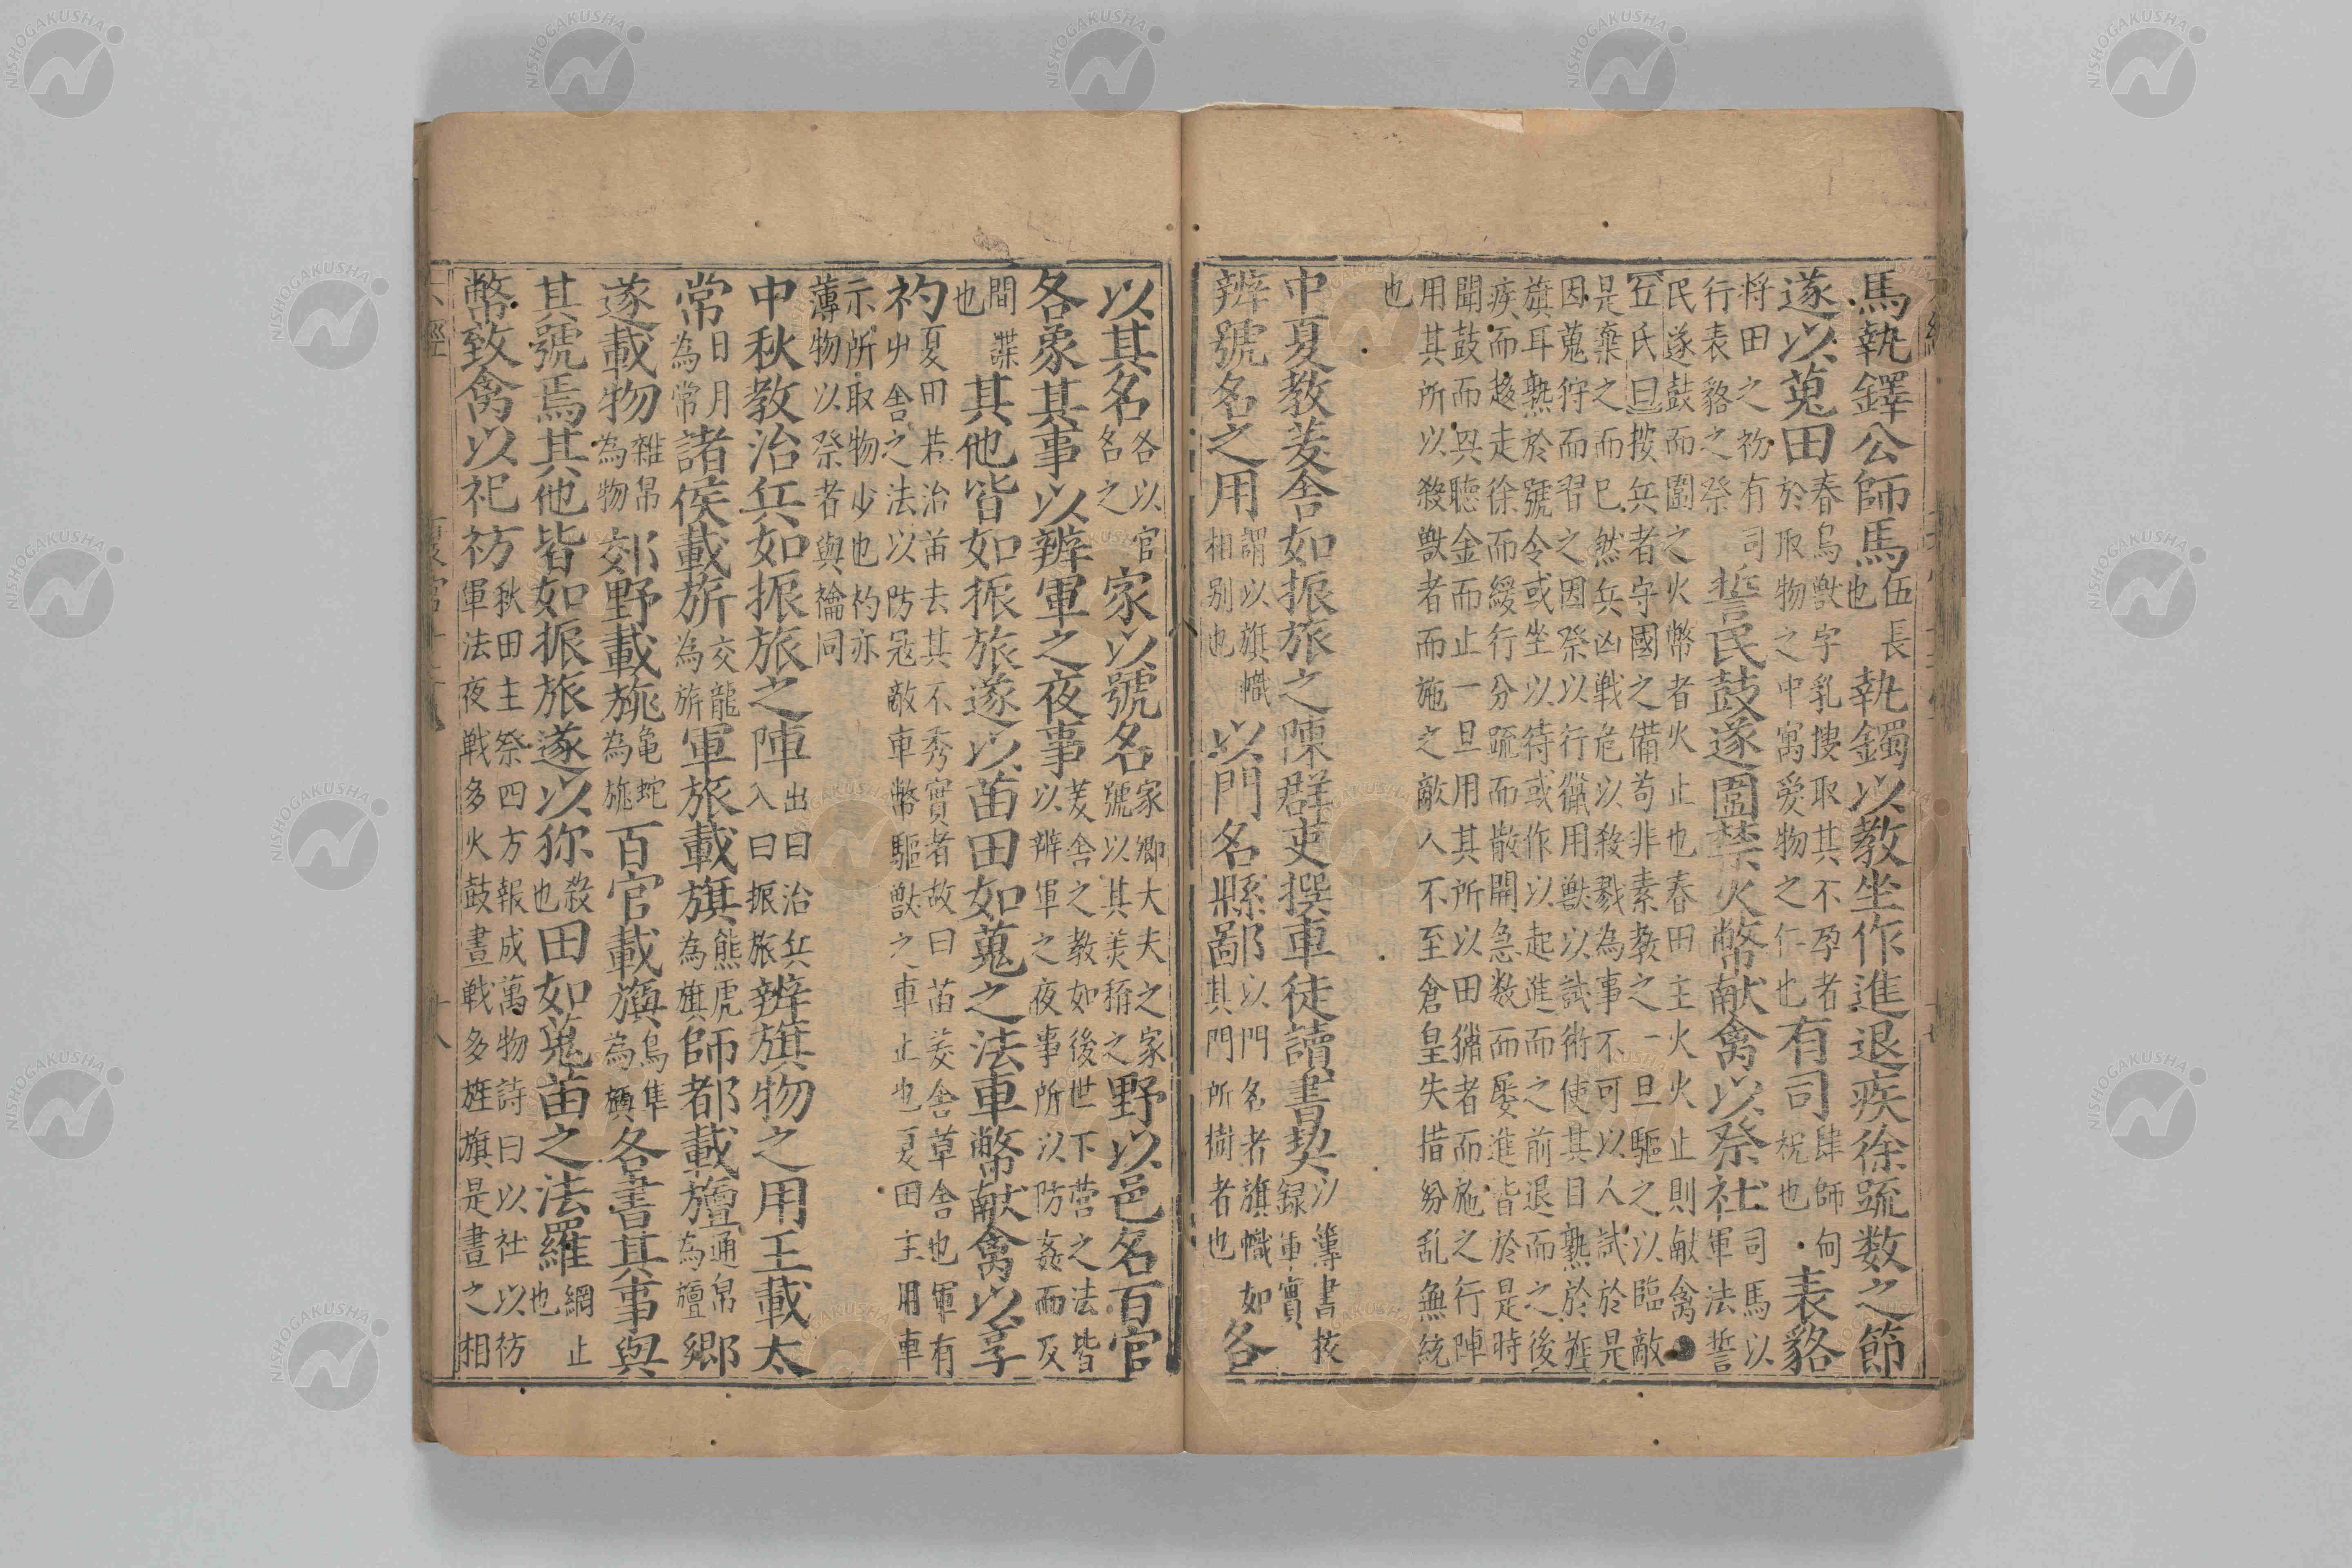 馬執鐸公師馬伍長也執鐲以教坐作進退疾徐䟽数之節
遂以蒐田春鳥獸字乳搜取其不孕者於取物之中寓爱物之仁也有司肆師甸祝也表貉
将田之礿有司行表貉之祭誓民鼓遂圍禁火幣献禽以祭社司馬以軍法誓
民遂鼓而圍之火幣者火止也春田主火火止則献禽
丘氏曰按兵者守國之備苟非素教之一旦驅之以臨敵
是棄之而已然兵凶戦危以殺戮為事不可以人試於是
因蒐狩而習之因祭以行獵用獸以試術使其目熟於旌
旗耳熟於號令或坐以待或作以起進而之前退而之後
疾而趍走徐而緩行分䟽而散開急数而屡進皆於是時
聞鼓而興聴金而止一旦用其所以田獵者而施之行陣
用其所以殺獸者而施之敵人不至倉皇失措紛乱無統
也
中夏教茇舎如振旅之陳群吏撰車徒讀書契以簿書挍録軍實
辨號名之用謂以旗幟相别也以門名縣鄙以門名者旗幟如其門所樹者也各
以其名各以官名之家以號名家郷大夫之家號以其美稱之野以邑名百官
各象其事以辨軍之夜事茇舎之教如後世下营之法皆以辨軍之夜事所以防姦而反
間諜也其他皆如振旅遂以苗田如蒐之法車幣献禽以享
礿夏田若治苗去其不秀實者故曰苗茇舎草舎也軍有屮舎之法以防冦敵車幣驅獸之車止也夏田主用車
示所取物少也礿亦薄物以祭者與禴同
中秋教治兵如振旅之陣出曰治兵入曰振旅辨旗物之用王載太
常日月為常諸侯載旂交龍為旂軍旅載旗熊虎為旗師都載旜通帛為旜郷
遂載物雜帛為物郊野載旐亀蛇為旐百官載旟鳥隼為旟各書其事與
其號焉其他皆如振旅遂以狝殺也田如蒐苗之法羅網止也
幣致禽以祀祊秋田主祭四方報成萬物詩曰以社以祊軍法夜戦多火鼓晝戦多旌旗是晝之相